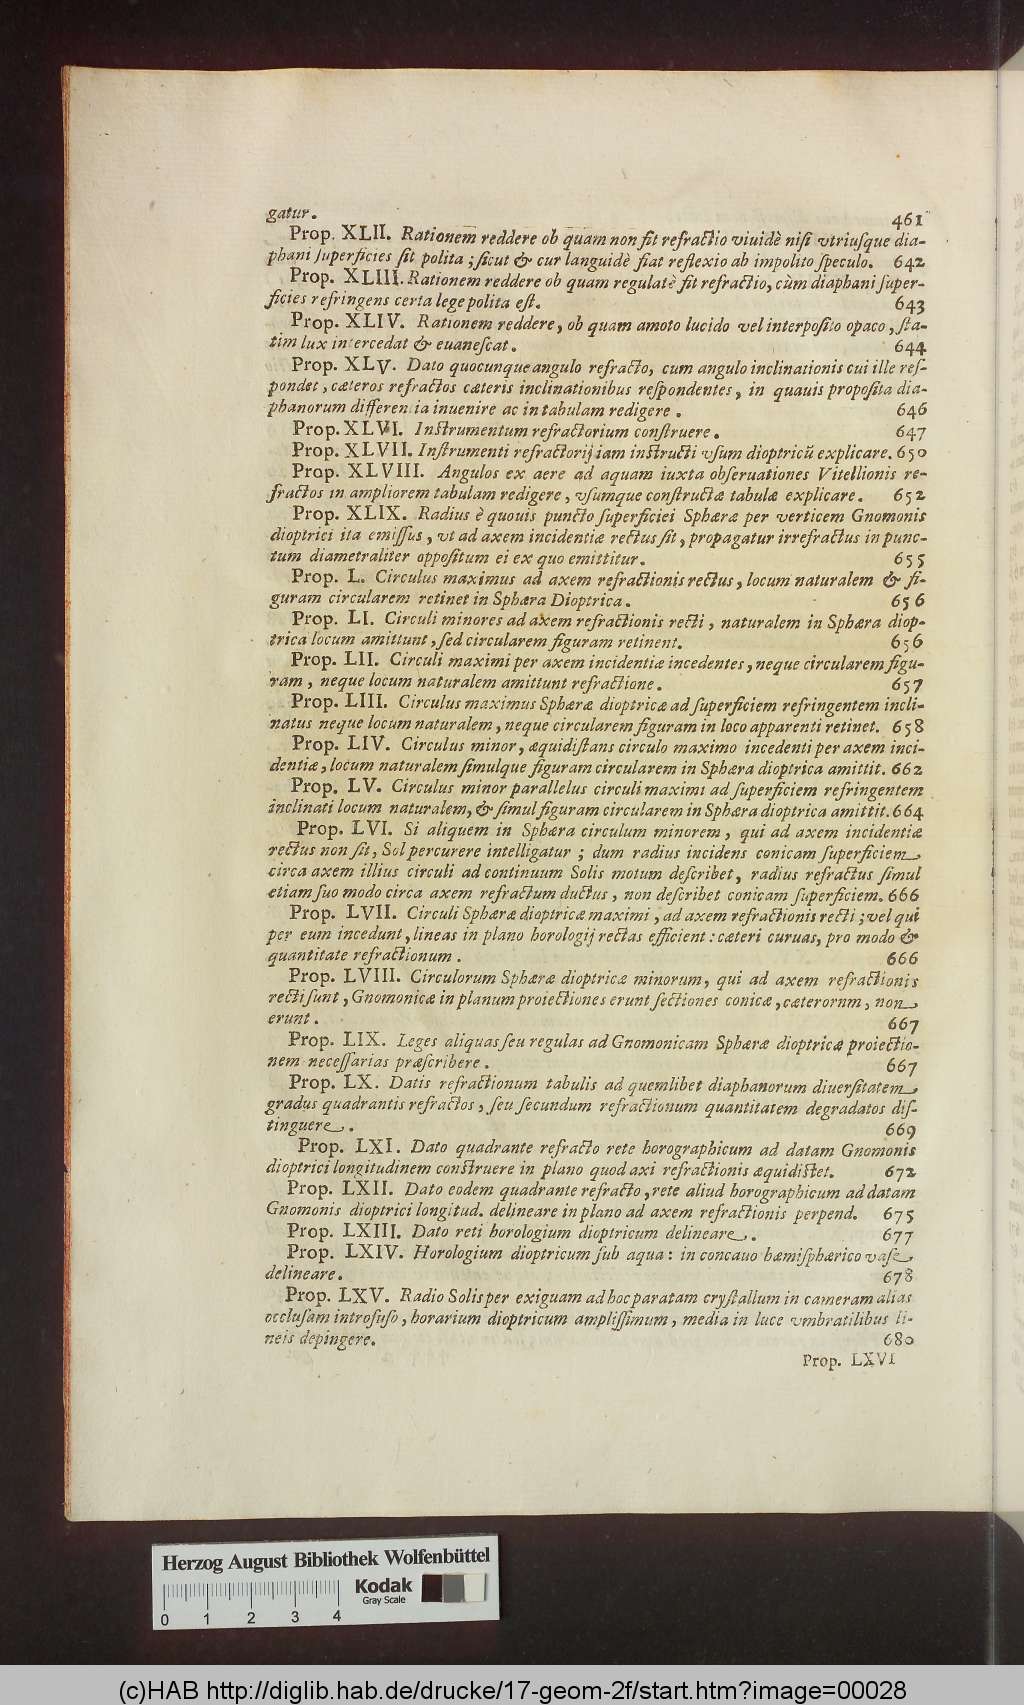 gatur. 461
Prop. XLII. Rationem reddere ob quam non fit refractio viuidè nisi vtriusque dia-
phani superficies sit polita ; sicut & cur languidè fiat reflexio ab impolito speculo. 642
Prop. XLIII. Rationem reddere ob quam regulatè fit refractio, cùm diaphani super-
ficies refringens certa lege polita est. 643
Prop. XLIV. Rationem reddere, ob quam amoto lucido vel interposito opaco, sta-
tim lux intercedat & euanescat. 644
Prop. XLV. Dato quocunque angulo refracto, cum angulo inclinationis cui ille res-
pondet, cæteros refractos cæteris inclinationibus respondentes, in quauis proposita dia-
phanorum differentia inuenire ac in tabulam redigere. 646
Prop. XLVI. Instrumentum refractorium construere. 647
Prop. XLVII. Instrumenti refractorij iam instructi vsum dioptricũ explicare. 650
Prop. XLVIII. Angulos ex aere ad aquam iuxta obseruationes Vitellionis re-
fractos in ampliorem tabulam redigere, vsumque constructæ tabulæ explicare. 652
Prop. XLIX. Radius è quouis puncto superficiei Sphæræ per verticem Gnomonis
dioptrici ita emissus, vt ad axem incidentiæ rectus sit, propagatur irrefractus in punc-
tum diametraliter oppositum ei ex quo emittitur. 655
Prop. L. Circulus maximus ad axem refractionis rectus, locum naturalem & fi-
guram circularem retinet in Sphæra Dioptrica. 656
Prop. LI. Circuli minores ad axem refractionis recti, naturalem in Sphæra diop-
trica locum amittunt, sed circularem figuram retinent. 656
Prop. LII. Circuli maximi per axem incidentiæ incedentes, neque circularem figu-
ram, neque locum naturalem amittunt refractione. 657
Prop. LIII. Circulus maximus Sphæræ dioptricæ ad superficiem refringentem incli-
natus neque locum naturalem, neque circularem figuram in loco apparenti retinet. 658
Prop. LIV. Circulus minor, æquidistans circulo maximo incedenti per axem inci-
dentiæ, locum naturalem simulque figuram circularem in Sphæra dioptrica amittit. 662
Prop. LV. Circulus minor parallelus circuli maximi ad superficiem refringentem
inclinati locum naturalem, & simul figuram circularem in Sphæra dioptrica amittit. 664
Prop. LVI. Si aliquem in Sphæra circulum minorem, qui ad axem incidentiæ
rectus non sit, Sol percurere intelligatur ; dum radius incidens conicam superficiem
circa axem illius circuli ad continuum Solis motum describet, radius refractus simul
etiam suo modo circa axem refractum ductus, non describet conicam superficiem. 666
Prop. LVII. Circuli Sphæræ dioptricæ maximi, ad axem refractionis recti ; vel qui
per eum incedunt, lineas in plano horologij rectas efficient : cæteri curuas, pro modo &
quantitate refractionum. 666
Prop. LVIII. Circulorum Sphæræ dioptricæ minorum, qui ad axem refractionis
recti sunt, Gnomonicæ in planum proiectiones erunt sectiones conicæ, cæterorum, non
erunt. 667
Prop. LIX. Leges aliquas seu regulas ad Gnomonicam Sphæræ dioptricæ proiectio-
nem necessarias præscribere. 667
Prop. LX. Datis refractionum tabulis ad quemlibet diaphanorum diuersitatem
gradus quadrantis refractos, seu secundum refractionum quantitatem degradatos dis-
tinguere. 669
Prop. LXI. Dato quadrante refracto rete horographicum ad datam Gnomonis
dioptrici longitudinem construere in plano quod axi refractionis æquidistet. 672
Prop. LXII. Dato eodem quadrante refracto, rete aliud horographicum ad datam
Gnomonis dioptrici longitud. delineare in plano ad axem refractionis perpend. 675
Prop. LXIII. Dato reti horologium dioptricum delineare. 677
Prop. LXIV. Horologium dioptricum sub aqua : in concauo hæmisphærico vase
delineare. 678
Prop. LXV. Radio Solis per exiguam ad hoc paratam crystallum in cameram alias
occlusam introfuso, horarium dioptricum amplissimum, media in luce vmbratilibus li-
neis depingere. 680
Prop. LXVI
Herzog August Bibliothek Wolfenbüttel
Kodak
Gray Scale
0 1 2 3 4
(c)HAB http://diglib.hab.de/drucke/17-geom-2f/start.htm?image=00028